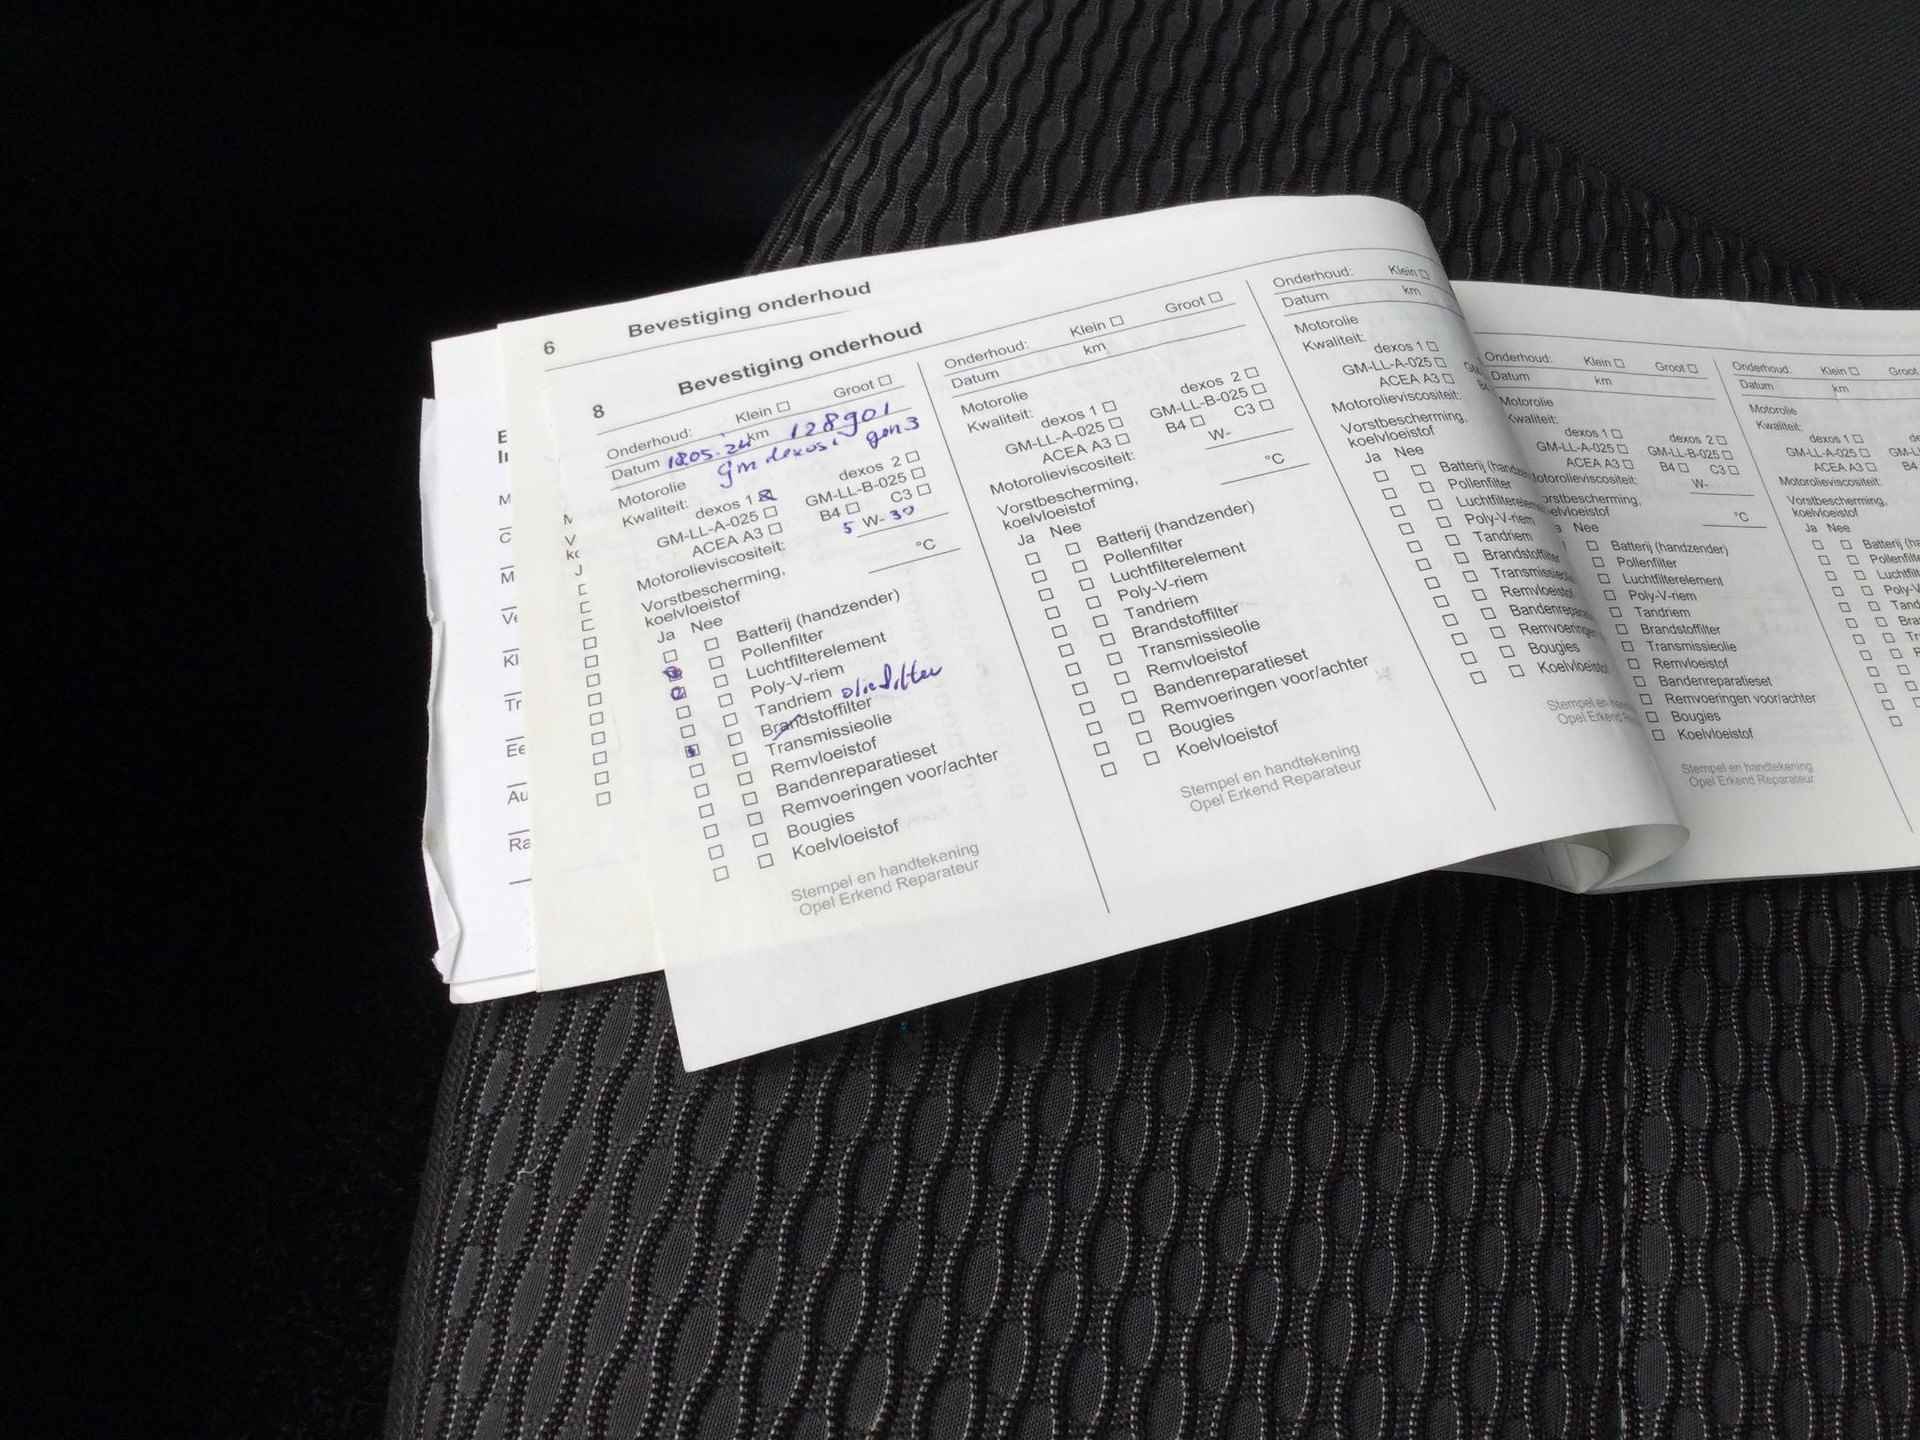 6 Bevestiging onderhoud
8 Bevestiging onderhoud
Onderhoud: Klein ☐ Groot ☐
Datum 18.05.24 km 128901
Motorolie gm dexos 1 gen 3
Kwaliteit: dexos 1 ☒ dexos 2 ☐
GM-LL-A-025 ☐ GM-LL-B-025 ☐
ACEA A3 ☐ B4 ☐ C3 ☐
Motorolieviscositeit: 5 W- 30
Vorstbescherming,
koelvloeistof °C
Ja Nee
Batterij (handzender)
Pollenfilter
Luchtfilterelement
Poly-V-riem
Tandriem oliefilter
Brandstoffilter
Transmissieolie
Remvloeistof
Bandenreparatieset
Remvoeringen voor/achter
Bougies
Koelvloeistof
Stempel en handtekening
Opel Erkend Reparateur
Onderhoud: Klein ☐ Groot ☐
Datum km
Motorolie
Kwaliteit: dexos 1 ☐ dexos 2 ☐
GM-LL-A-025 ☐ GM-LL-B-025 ☐
ACEA A3 ☐ B4 ☐ C3 ☐
Motorolieviscositeit: W-
Vorstbescherming,
koelvloeistof °C
Ja Nee
Batterij (handzender)
Pollenfilter
Luchtfilterelement
Poly-V-riem
Tandriem
Brandstoffilter
Transmissieolie
Remvloeistof
Bandenreparatieset
Remvoeringen voor/achter
Bougies
Koelvloeistof
Stempel en handtekening
Opel Erkend Reparateur
Onderhoud: Klein ☐
Datum km
Motorolie
Kwaliteit: dexos 1 ☐
GM-LL-A-025 ☐
ACEA A3 ☐
Motorolieviscositeit:
Vorstbescherming,
koelvloeistof
Ja Nee
Batterij
Pollenfilter
Poly-V-riem
Tandriem
Bougies
Stempel en
Opel Erkend
Onderhoud: Klein ☐ Groot ☐
Datum km
Motorolie
Kwaliteit:
dexos 1 ☐ dexos 2 ☐
GM-LL-A-025 ☐ GM-LL-B-025 ☐
ACEA A3 ☐ B4 ☐ C3 ☐
W-
°C
Nee
Batterij (handzender)
Pollenfilter
Luchtfilterelement
Poly-V-riem
Tandriem
Brandstoffilter
Transmissieolie
Remvloeistof
Bandenreparatieset
Remvoeringen voor/achter
Bougies
Koelvloeistof
Stempel en handtekening
Opel Erkend Reparateur
Onderhoud: Klein ☐ Groot
Datum km
Motorolie
Kwaliteit:
dexos 1 ☐
GM-LL-A-025 ☐
ACEA A3 ☐
Motorolieviscositeit:
Vorstbescherming,
koelvloeistof
Ja Nee
Batterij
Pollenfilter